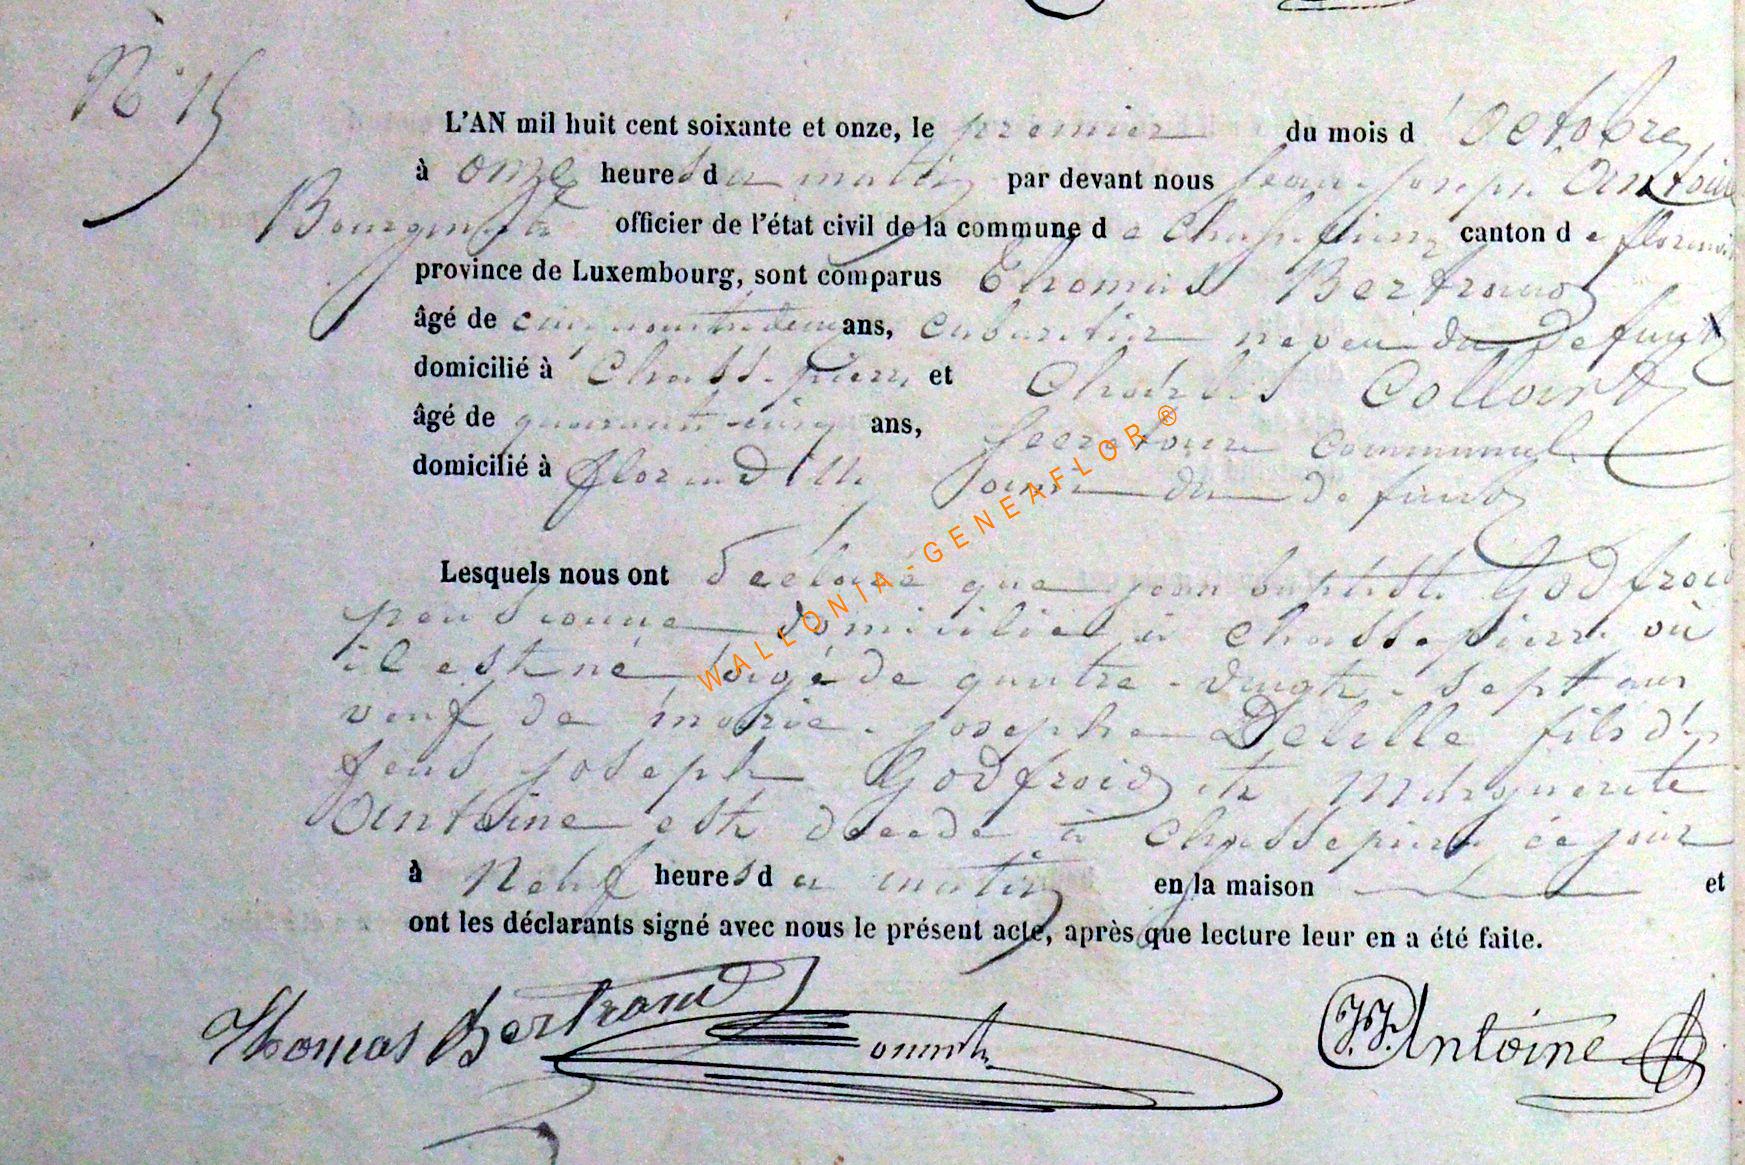 N° 15
L'AN mil huit cent soixante et onze, le premier du mois d'Octobre
à onze heures du matin par devant nous Jean-Joseph Antoine
Bourgmestre officier de l'état civil de la commune de Chassepierre canton de florenville
province de Luxembourg, sont comparus Thomas Bertrand
âgé de cinquante deux ans, Cabaretier neveu du defunt
domicilié à Chassepierre et Charles Collart
âgé de quarante-cinq ans, Secretaire communal
domicilié à florenville du defunt
Lesquels nous ont declaré que jean baptiste Godfroid
pensionné domicilié à chassepierre où
il est né âgé de quatre-vingt-sept ans
veuf de marie-josephe Delille fils des
feus joseph Godfroid et Marguerite
Antoine est décédé à Chassepierre ce jour
à Neuf heures du matin en la maison et
ont les déclarants signé avec nous le présent acte, après que lecture leur en a été faite.
Thomas Bertrand
J.J. Antoine
WALLONIA-GENEAFLOR®